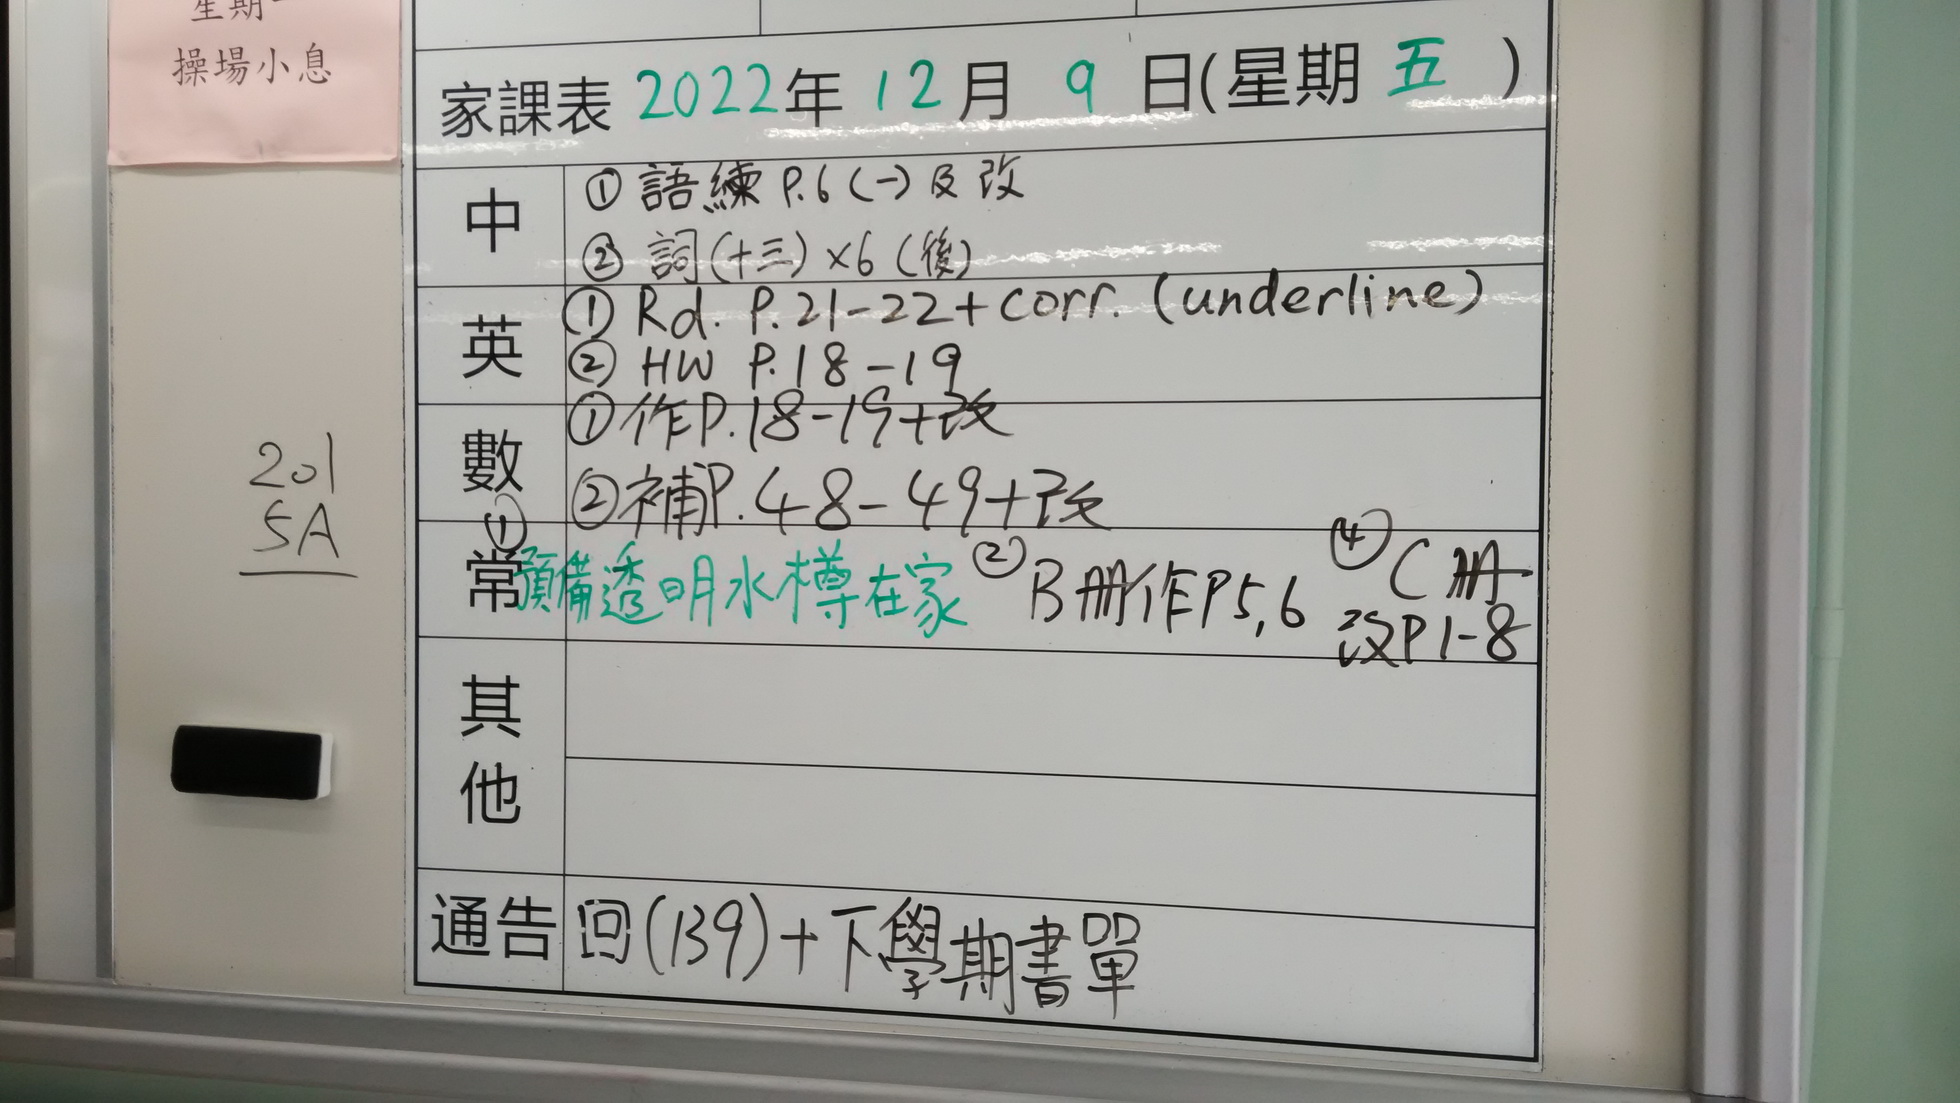 操場小息
家課表 2022年 12月 9日(星期五)
中
① 語練 P.6 (一) 及 改
② 詞(十三)×6 (後)
英
① Rd. P.21-22 + corr. (underline)
② HW P.18-19
數
① 作P.18-19+改
② 補P.48-49+改
常
① 預備透明水樽在家 ② B冊作P5,6 ④ C冊
改P1-8
其他
通告 回(139)+下學期書單
201
5A